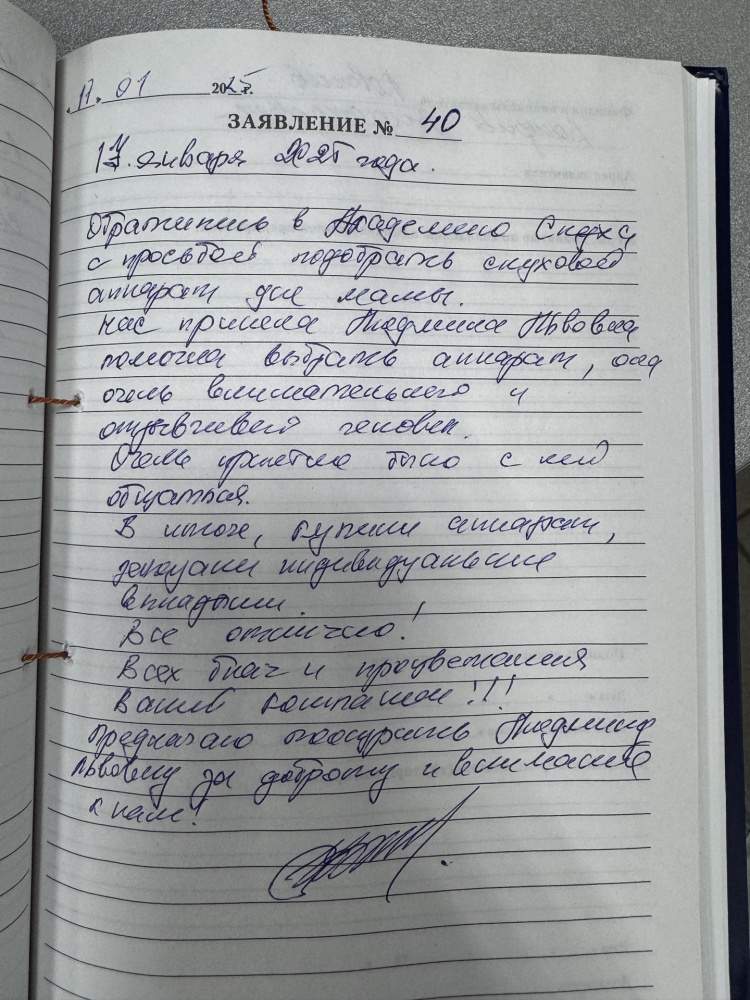 17. 01 2025 г.
ЗАЯВЛЕНИЕ № 40
17. января 2025 года.
Обратились в Академию Слуха
с просьбой подобрать слуховой
аппарат для мамы.
Нас приняла Людмила Львовна
помогла выбрать аппарат, она
очень внимательный и
отзывчивый человек.
Очень приятно было с ней
общаться.
В итоге, купили аппарат,
заказали индивидуальные
вкладыши.
Все отлично!
Всех благ и процветания
Вашей компании!!!
Предлагаю поощрить Людмилу
Львовну за доброту и внимание
к нам!